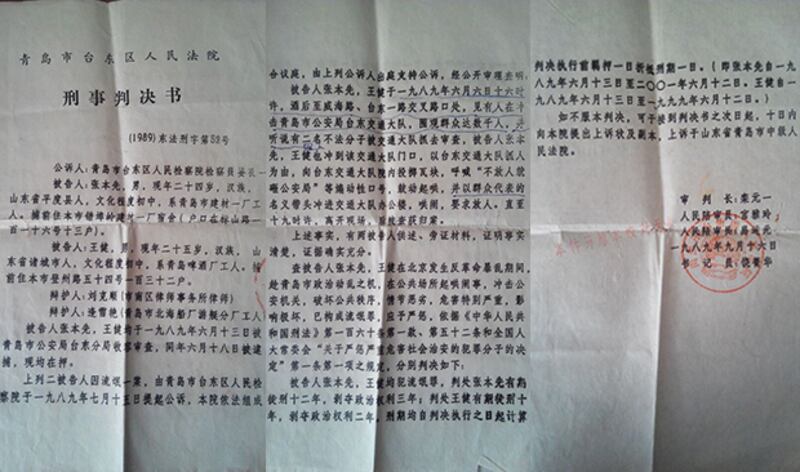 青岛市台东区人民法院
刑事判决书
(1989)东法刑字第52号
公诉人：青岛市台东区人民检察院检察员
被告人：张本先，男，现年二十四岁，汉族，
山东省平度县人，文化程度初中，系青岛市建材一厂工
人。捕前住本市错埠岭建材一厂宿舍(户口在标山路一
百一十六号十三户)。
被告人：王健，男，现年二十五岁，汉族，山
东省诸城市人，文化程度初中，系青岛啤酒厂工人。捕
前住本市登州路五十四号一百三十二户。
辩护人：刘克顺(市南区律师事务所律师)
辩护人：逄雪艳(青岛市北海船厂游艇分厂工人)
被告人张本先、王健均于一九八九年六月十三日被
青岛市公安局台东分局收容审查，同年六月十八日被逮
捕，现均在押。
上列二被告人因流氓一案，由青岛市台东区人民检
察院于一九八九年七月十五日提起公诉，本院依法组成
合议庭，由上列公诉人出庭支持公诉，经公开审理查明：
被告人张本先、王健于一九八九年六月六日十六时
许，酒后至威海路、台东一路交叉路口处，见有人在冲
击青岛市公安局台东交通大队，围观群众达数千人，并
听说有二名不法分子被交通大队抓去审查，被告人张本
先、王健也冲到该交通大队门口，以台东交通大队抓人
为由，向台东交通大队院内投掷瓦块，呼喊“不放人就
砸公安局”等煽动性口号，鼓动起哄，并以群众代表的
名义带头冲进交通大队办公楼，哄闹，要求放人。直至
十九时许，离开现场，后被查获归案。
上述事实，有两被告人供述、旁证材料，证明事实
清楚，证据确实充分。
查被告人张本先、王健在北京发生反革命暴乱期间，
趁青岛市政治动乱之机，在公共场所起哄闹事，冲击公
安机关，破坏公共秩序，情节恶劣，危害特别严重，影
响极坏，已构成流氓罪，应予严惩，依据《中华人民共
和国刑法》第一百六十条第一款、第五十二条和全国人
大常委会“关于严惩严重危害社会治安的犯罪分子的决
定”第一条第一项之规定，分别判决如下：
被告人张本先、王健均犯流氓罪，判处张本先有期
徒刑十二年，剥夺政治权利三年；判处王健有期徒刑十
年，剥夺政治权利二年，刑期均自判决执行之日起计算
判决执行前羁押一日折抵刑期一日。(即张本先自一九
八九年六月十三日至二〇〇一年六月十二日。王健自一
九八九年六月十三日至一九九九年六月十二日。)
如不服本判决，可于接到判决书之次日起，十日内
向本院提出上诉状及副本，上诉于山东省青岛市中级人
民法院。
审判长：栾元一
人民陪审员：宫雅玲
人民陪审员：
一九八九年九月十六日
书记员：饶景华